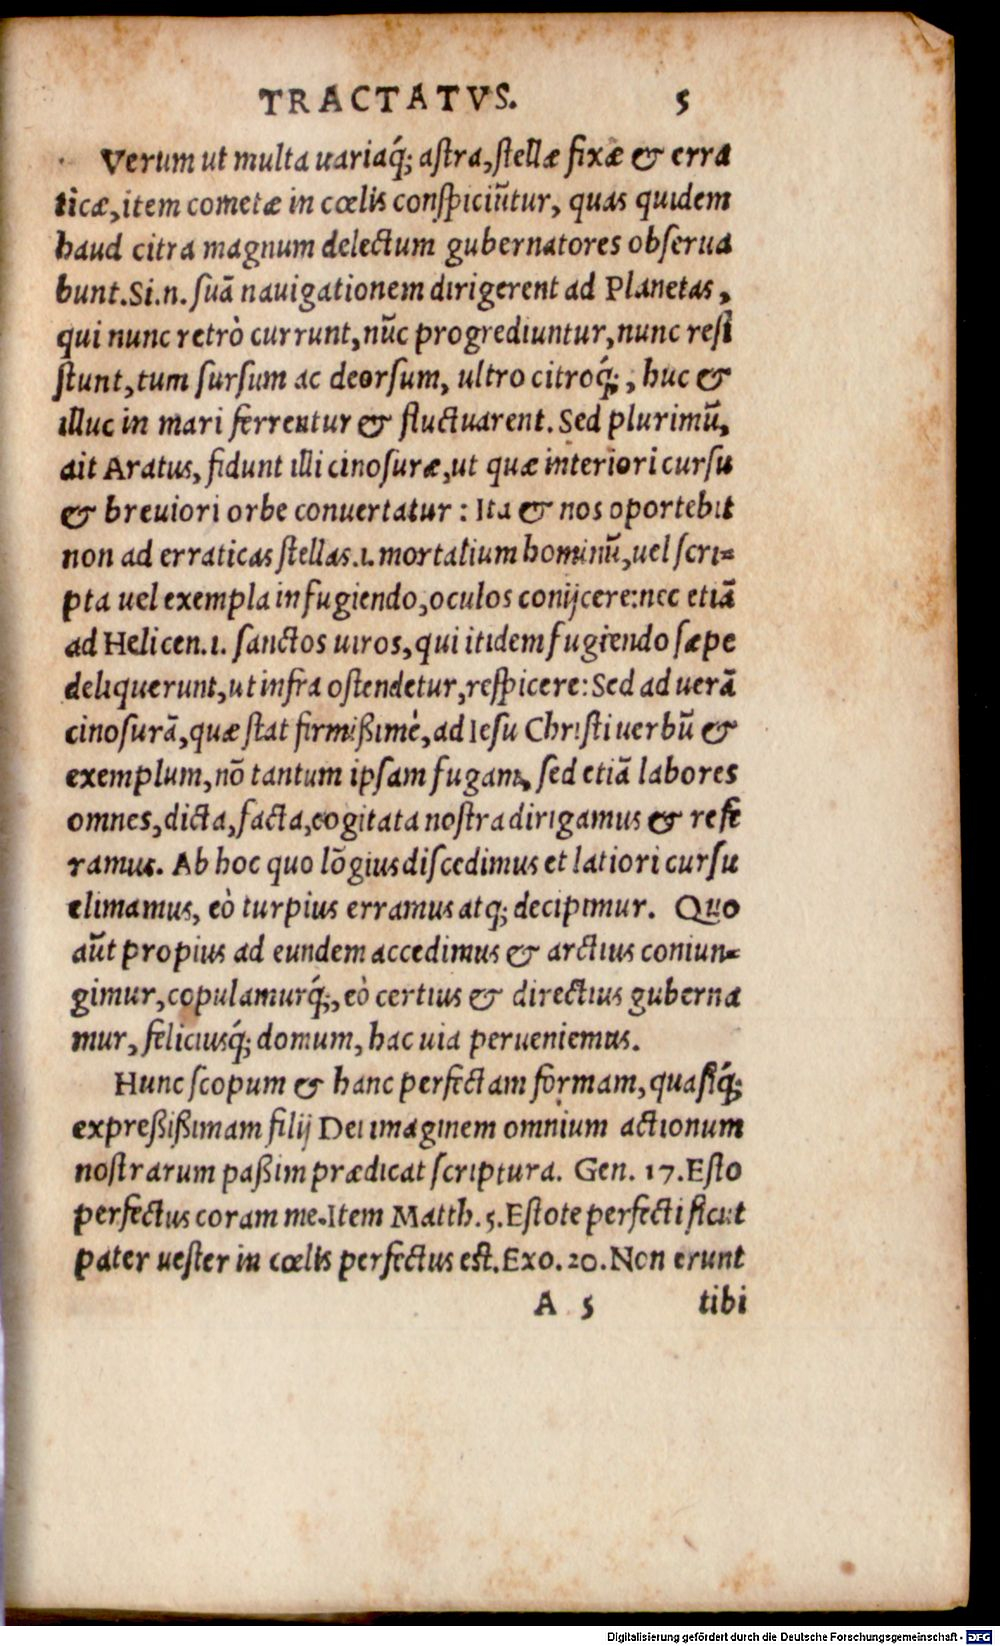 TRACTATVS. 5
Verum ut multa uariaq́; aſtra, ſtellæ fixæ & erra
ticæ, item cometæ in cœlis conſpiciũtur, quas quidem
haud citra magnum delectum gubernatores obſerua
bunt. Si.n. ſuã nauigationem dirigerent ad Planetas,
qui nunc retrò currunt, nũc progrediuntur, nunc reſi
ſtunt, tum ſurſum ac deorſum, ultro citroq́;, huc &
illuc in mari ferrentur & fluctuarent. Sed plurimũ,
ait Aratus, fidunt illi cinoſuræ, ut quæ interiori curſu
& breuiori orbe conuertatur: Ita & nos oportebit
non ad erraticas ſtellas.i. mortalium hominũ, uel ſcri-
pta uel exempla in fugiendo, oculos conijcere: nec etiã
ad Helicen.i. ſanctos uiros, qui itidem fugiendo ſæpe
deliquerunt, ut infra oſtendetur, reſpicere: Sed ad uerã
cinoſurã, quæ ſtat firmißimè, ad Ieſu Chriſti uerbũ &
exemplum, nõ tantum ipſam fugam, ſed etiã labores
omnes, dicta, facta, cogitata noſtra dirigamus & refe
ramus. Ab hoc quo lõgius diſcedimus et latiori curſu
elimamus, eò turpius erramus atq; decipimur. Quo
aũt propius ad eundem accedimus & arctius coniun-
gimur, copulamurq́;, eò certius & directius guberna
mur, feliciusq́; domum, hac uia perueniemus.
Hunc ſcopum & hanc perfectam formam, quaſiq́;
expreßißimam filij Dei imaginem omnium actionum
noſtrarum paßim prædicat ſcriptura. Gen. 17. Eſto
perfectus coram me. Item Matth. 5. Eſtote perfecti ſicut
pater ueſter in cœlis perfectus eſt. Exo. 20. Non erunt
A 5 tibi
Digitalisierung gefördert durch die Deutsche Forschungsgemeinschaft - DFG